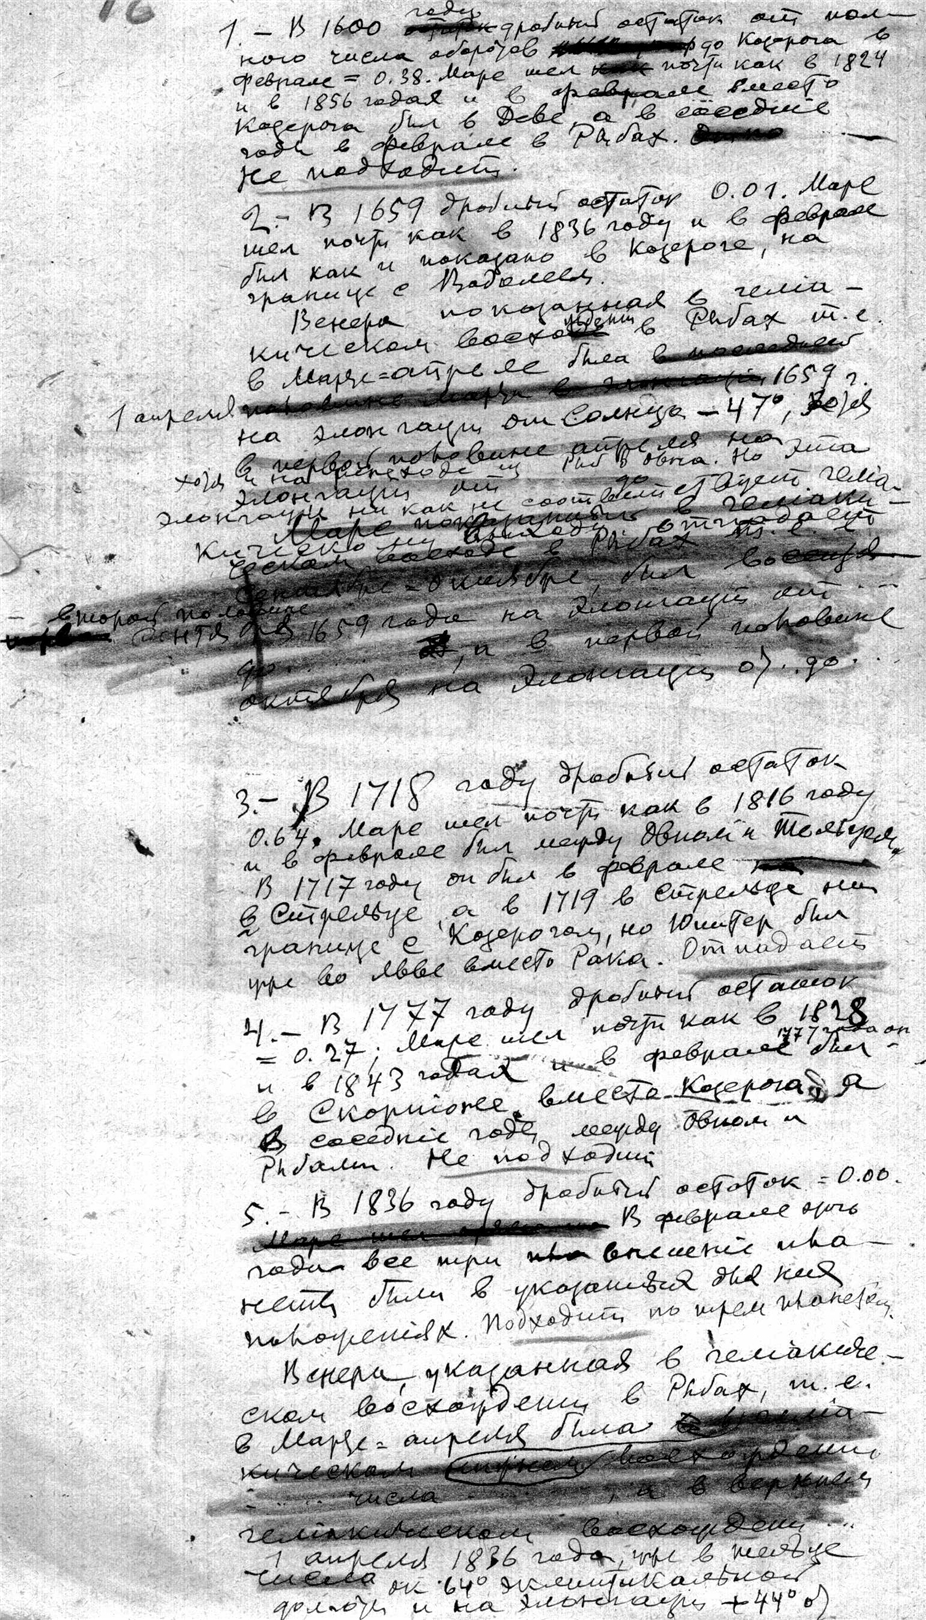 16
1. – В 1600 году дробный остаток от пол-
ного числа оборотов до Козерога в
феврале = 0.38. Марс шел почти как в 1824
и в 1856 годах и в феврале вместо
Козерога был в Деве, а в соседние
годы в феврале в Рыбах.
Не подходит.
2. – В 1659 дробный остаток 0.01. Марс
шел почти как в 1836 году и в феврале
был как и показано в Козероге, на
границе с Водолеем.
Венера показанная в геліа-
кическом восхождении в Рыбах т.е.
в Марте=апреле была
1 апреля 1659 г.
на элонгации от Солнца – 47°, хотя
и на исходе из Рыб в Овна. Но эта
элонгация ни как не соответствует геліа-
кическому восходу. отпадает
второй половине
сентября 1659 года на элонгации от ...
до ... , и в первой половине
октября на элонгации от .. до ...
3. – В 1718 году дробный остаток
0.64. Марс шел почти как в 1816 году
и в феврале был между Овном и Тельцом.
В 1717 году он был в феврале
в Стрельце, а в 1719 в Стрельце на
границе с Козерогом, но Юпитер был
уже во Льве вместо Рака. Отпадает
4. – В 1777 году дробный остаток
= 0.27; Марс шел почти как в 1828
и в 1843 годах и в феврале 1777 года он был
в Скорпионе вместо Козерога, а
в соседние годы между Овном и
Рыбами. Не подходит
5. – В 1836 году дробный остаток = 0.00.
В феврале этого
года все три внешние пла-
неты были в указанных для них
положеніях. Подходит по трем планетам.
Венера, указанная в геліакиче-
ском восхождении в Рыбах, т.е.
в Марте=апреле была
кическом восхождении
... числа , и в верхнем
геліакическом восхождении ...
1 апреля 1836 года, уже в тельце
числа ок. 64° эклиптикальной
долготы и на элонгации +44° от